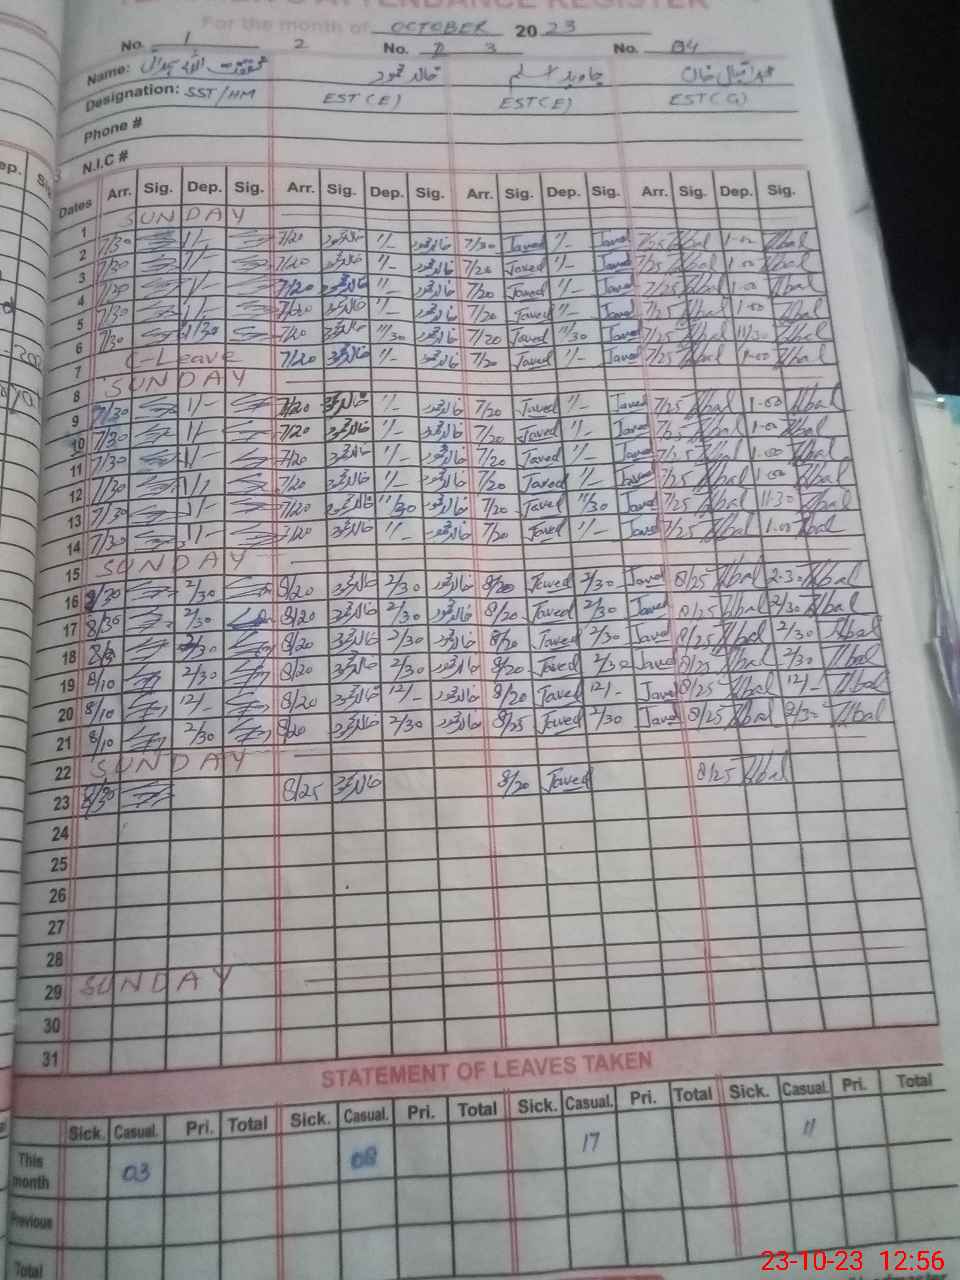 TEACHER'S ATTENDANCE REGISTER
For the month of OCTOBER 20 23
No. 1 2 No. 3 No. 04
Name: خالد محمود جاوید اسلم اقبال خان
Designation: SST/HM EST(E) EST(E) EST(G)
Phone #
N.I.C #
Dates Arr. Sig. Dep. Sig. Arr. Sig. Dep. Sig. Arr. Sig. Dep. Sig. Arr. Sig. Dep. Sig.
1 SUNDAY
2 7/30 1/- 7/20 خالد محمود 1/- خالد محمود 7/30 Javed 1/- Javed 7/25 Iqbal 1-00 Iqbal
3 7/30 1/- 7/20 خالد محمود 1/- خالد محمود 7/20 Javed 1/- Javed 7/25 Iqbal 1-00 Iqbal
4 1/- 7/20 خالد محمود 1/- خالد محمود 7/20 Javed 1/- Javed 7/25 Iqbal 1-00 Iqbal
5 7/30 1/- 7/20 خالد محمود 1/- خالد محمود 7/20 Javed 1/- Javed 7/25 Iqbal 1-00 Iqbal
6 7/30 11/30 7/20 خالد محمود 11/30 خالد محمود 7/20 Javed 11/30 Javed 7/25 Iqbal 11/30 Iqbal
7 C-Leave 7/20 خالد محمود 1/- خالد محمود 7/20 Javed 1/- Javed 7/25 Iqbal 1-00 Iqbal
8 SUNDAY
9 7/30 1/- 7/20 خالد محمود 1/- خالد محمود 7/20 Javed 1/- Javed 7/25 Iqbal 1-00 Iqbal
10 7/30 1/- 7/20 خالد محمود 1/- خالد محمود 7/20 Javed 1/- Javed 7/25 Iqbal 1-00 Iqbal
11 7/30 1/- 7/20 خالد محمود 1/- خالد محمود 7/20 Javed 1/- Javed 7/25 Iqbal 1-00 Iqbal
12 1/- 7/20 خالد محمود 1/- خالد محمود 7/20 Javed 1/- Javed 7/25 Iqbal 1-00 Iqbal
13 7/30 7/20 خالد محمود 11/30 خالد محمود 7/20 Javed 11/30 Javed 7/25 Iqbal 11-30 Iqbal
14 7/30 1/- 7/20 خالد محمود 1/- خالد محمود 7/20 Javed 1/- Javed 7/25 Iqbal 1-00 Iqbal
15 SUNDAY
16 8/30 2/30 8/20 خالد محمود 2/30 خالد محمود 8/20 Javed 2/30 Javed 8/25 Iqbal 2-30 Iqbal
17 8/30 2/30 8/20 خالد محمود 2/30 خالد محمود 8/20 Javed 2/30 Javed 8/25 Iqbal 2/30 Iqbal
18 2/30 8/20 خالد محمود 2/30 خالد محمود 8/20 Javed 2/30 Javed 8/25 Iqbal 2/30 Iqbal
19 8/10 2/30 8/20 خالد محمود 2/30 خالد محمود 8/20 Javed 2/30 Javed 8/25 Iqbal 2/30 Iqbal
20 8/10 12/- 8/20 خالد محمود 12/- خالد محمود 8/20 Javed 12/- Javed 8/25 Iqbal 12/- Iqbal
21 8/10 2/30 8/20 خالد محمود 2/30 خالد محمود 8/25 Javed 2/30 Javed 8/25 Iqbal 2/30 Iqbal
22 SUNDAY
23 8/25 خالد محمود 8/20 Javed 8/25 Iqbal
24
25
26
27
28
29 SUNDAY
30
31
STATEMENT OF LEAVES TAKEN
Sick. Casual. Pri. Total Sick. Casual. Pri. Total Sick. Casual. Pri. Total Sick. Casual. Pri. Total
This month 03 08 17 11
Previous
Total
23-10-23 12:56